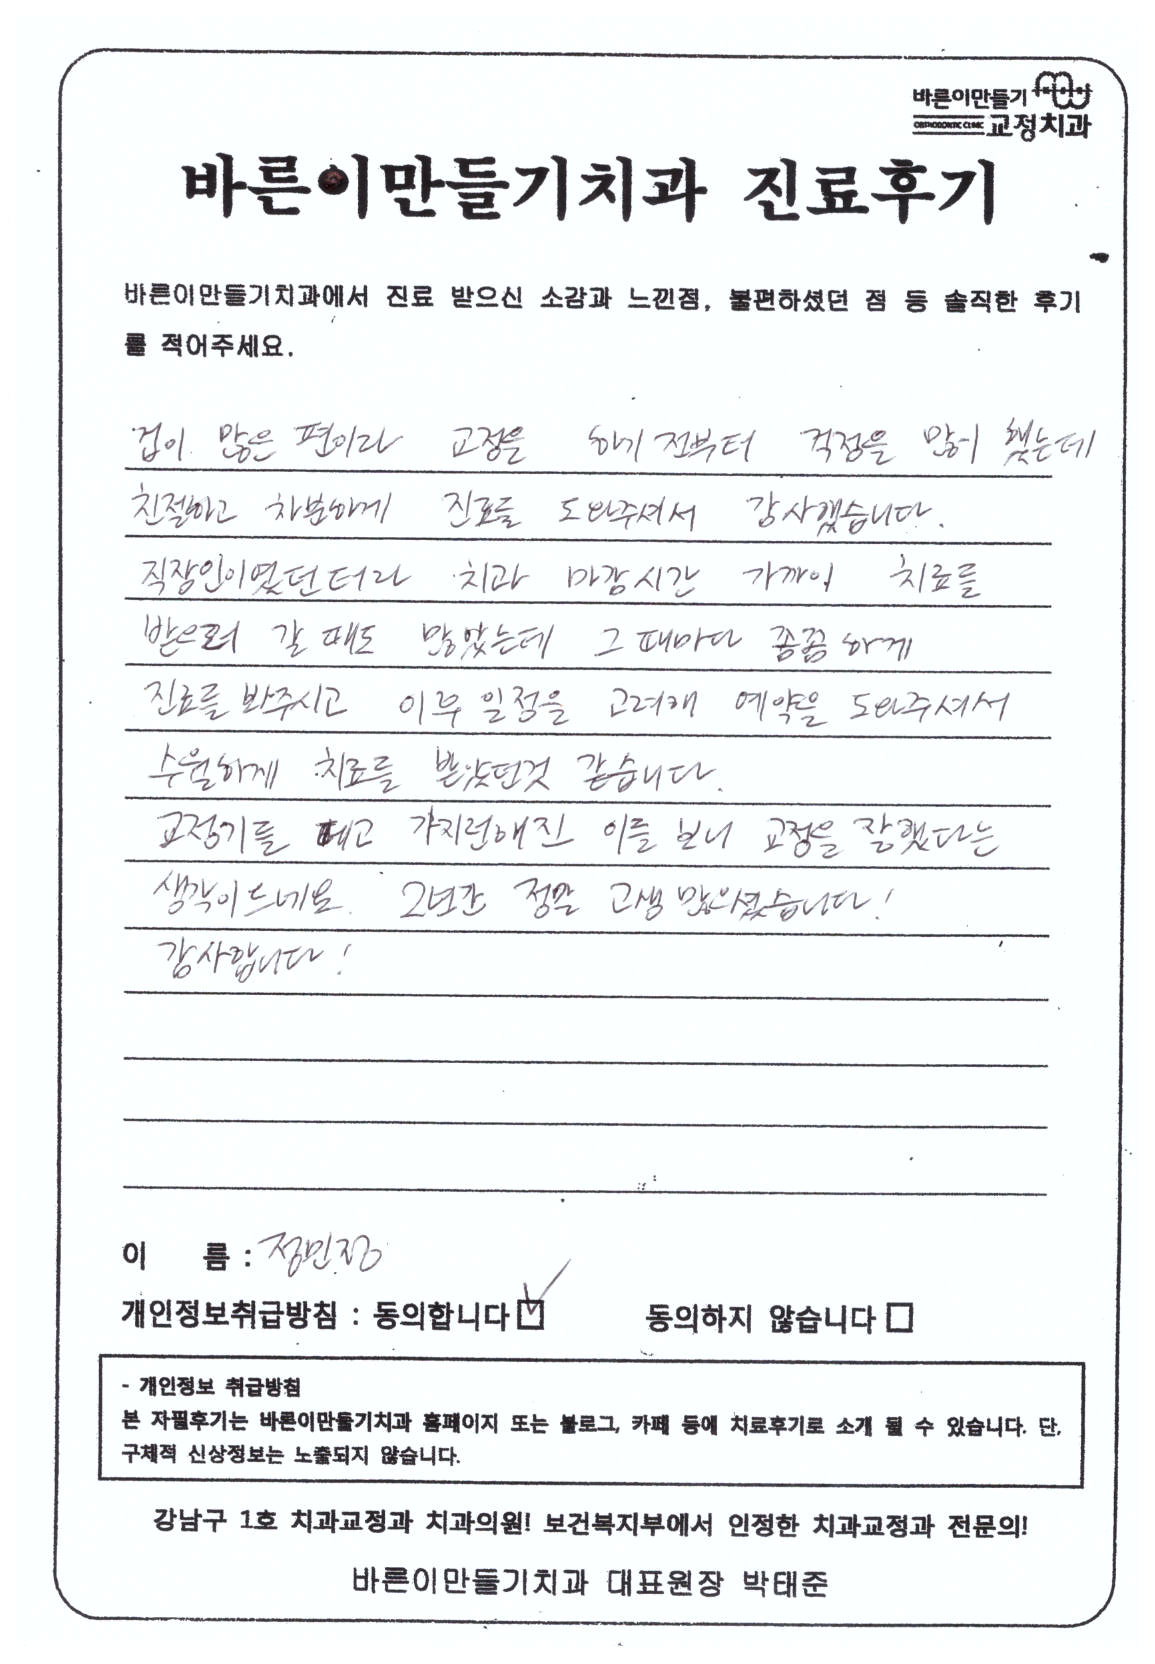 바른이만들기
ORTHODONTIC CLINIC 교정치과
바른이만들기치과 진료후기
바른이만들기치과에서 진료 받으신 소감과 느낀점, 불편하셨던 점 등 솔직한 후기
를 적어주세요.
겁이 많은 편이라 교정을 하기 전부터 걱정을 많이 했는데
친절하고 차분하게 진료를 도와주셔서 감사했습니다.
직장인이였던터라 치과 마감시간 가까이 치료를
받으러 갈 때도 많았는데 그때마다 꼼꼼하게
진료를 봐주시고 이후 일정을 고려해 예약을 도와주셔서
수월하게 치료를 받았던것 같습니다.
교정기를 떼고 가지런해진 이를 보니 교정을 잘했다는
생각이 드네요. 2년간 정말 고생 많으셨습니다!
감사합니다!
이 름 : 정민정
개인정보취급방침 : 동의합니다 동의하지 않습니다
- 개인정보 취급방침
본 자필후기는 바른이만들기치과 홈페이지 또는 블로그, 카페 등에 치료후기로 소개 될 수 있습니다. 단,
구체적 신상정보는 노출되지 않습니다.
강남구 1호 치과교정과 치과의원! 보건복지부에서 인정한 치과교정과 전문의!
바른이만들기치과 대표원장 박태준